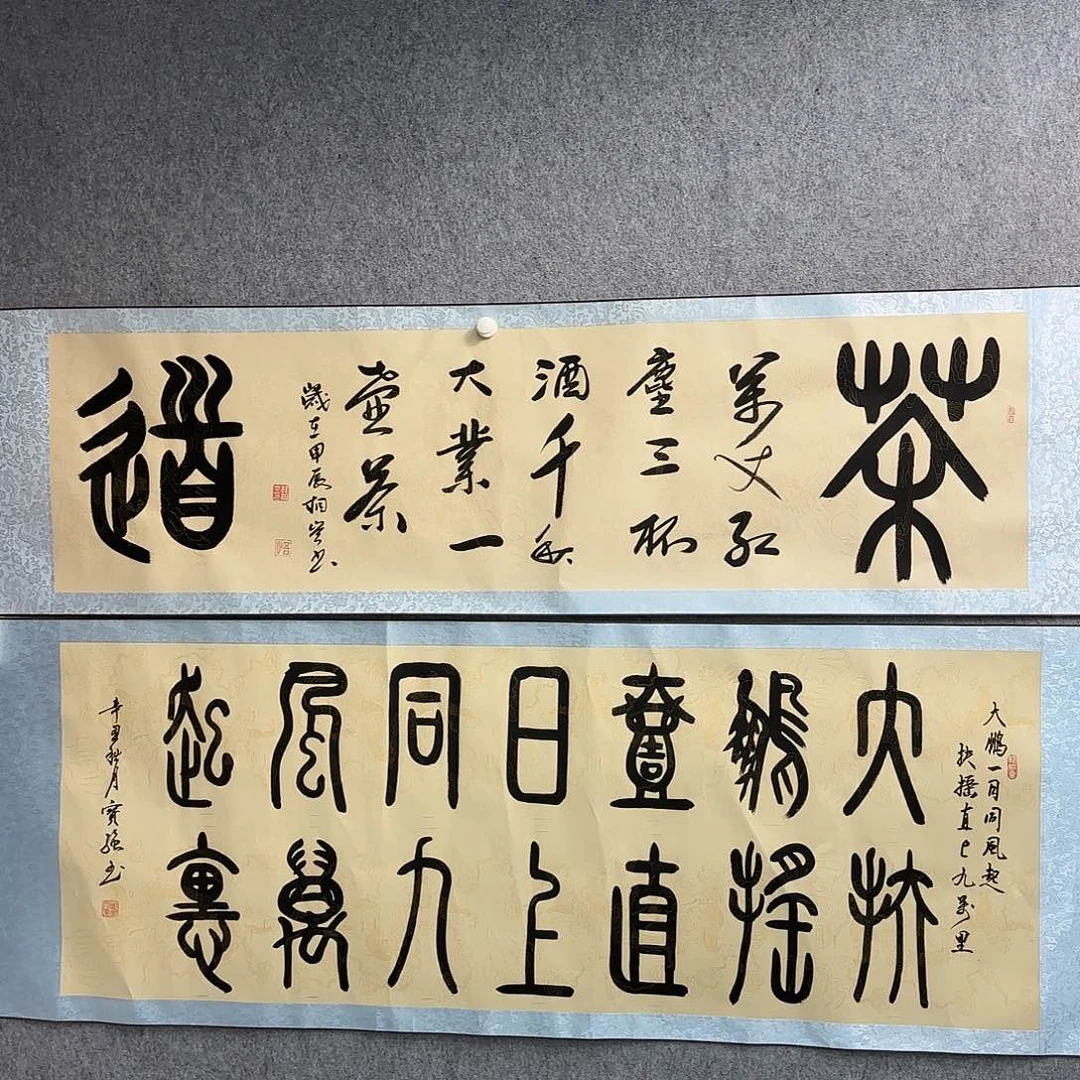 茶
萬丈紅
塵三杯
酒千秋
大業一
壺茶
歲在甲辰书
道
大鵬一日同風起
扶搖直上九萬里
大鵬壹日同風起
扶搖直上九萬裏
辛丑秋月寶強书